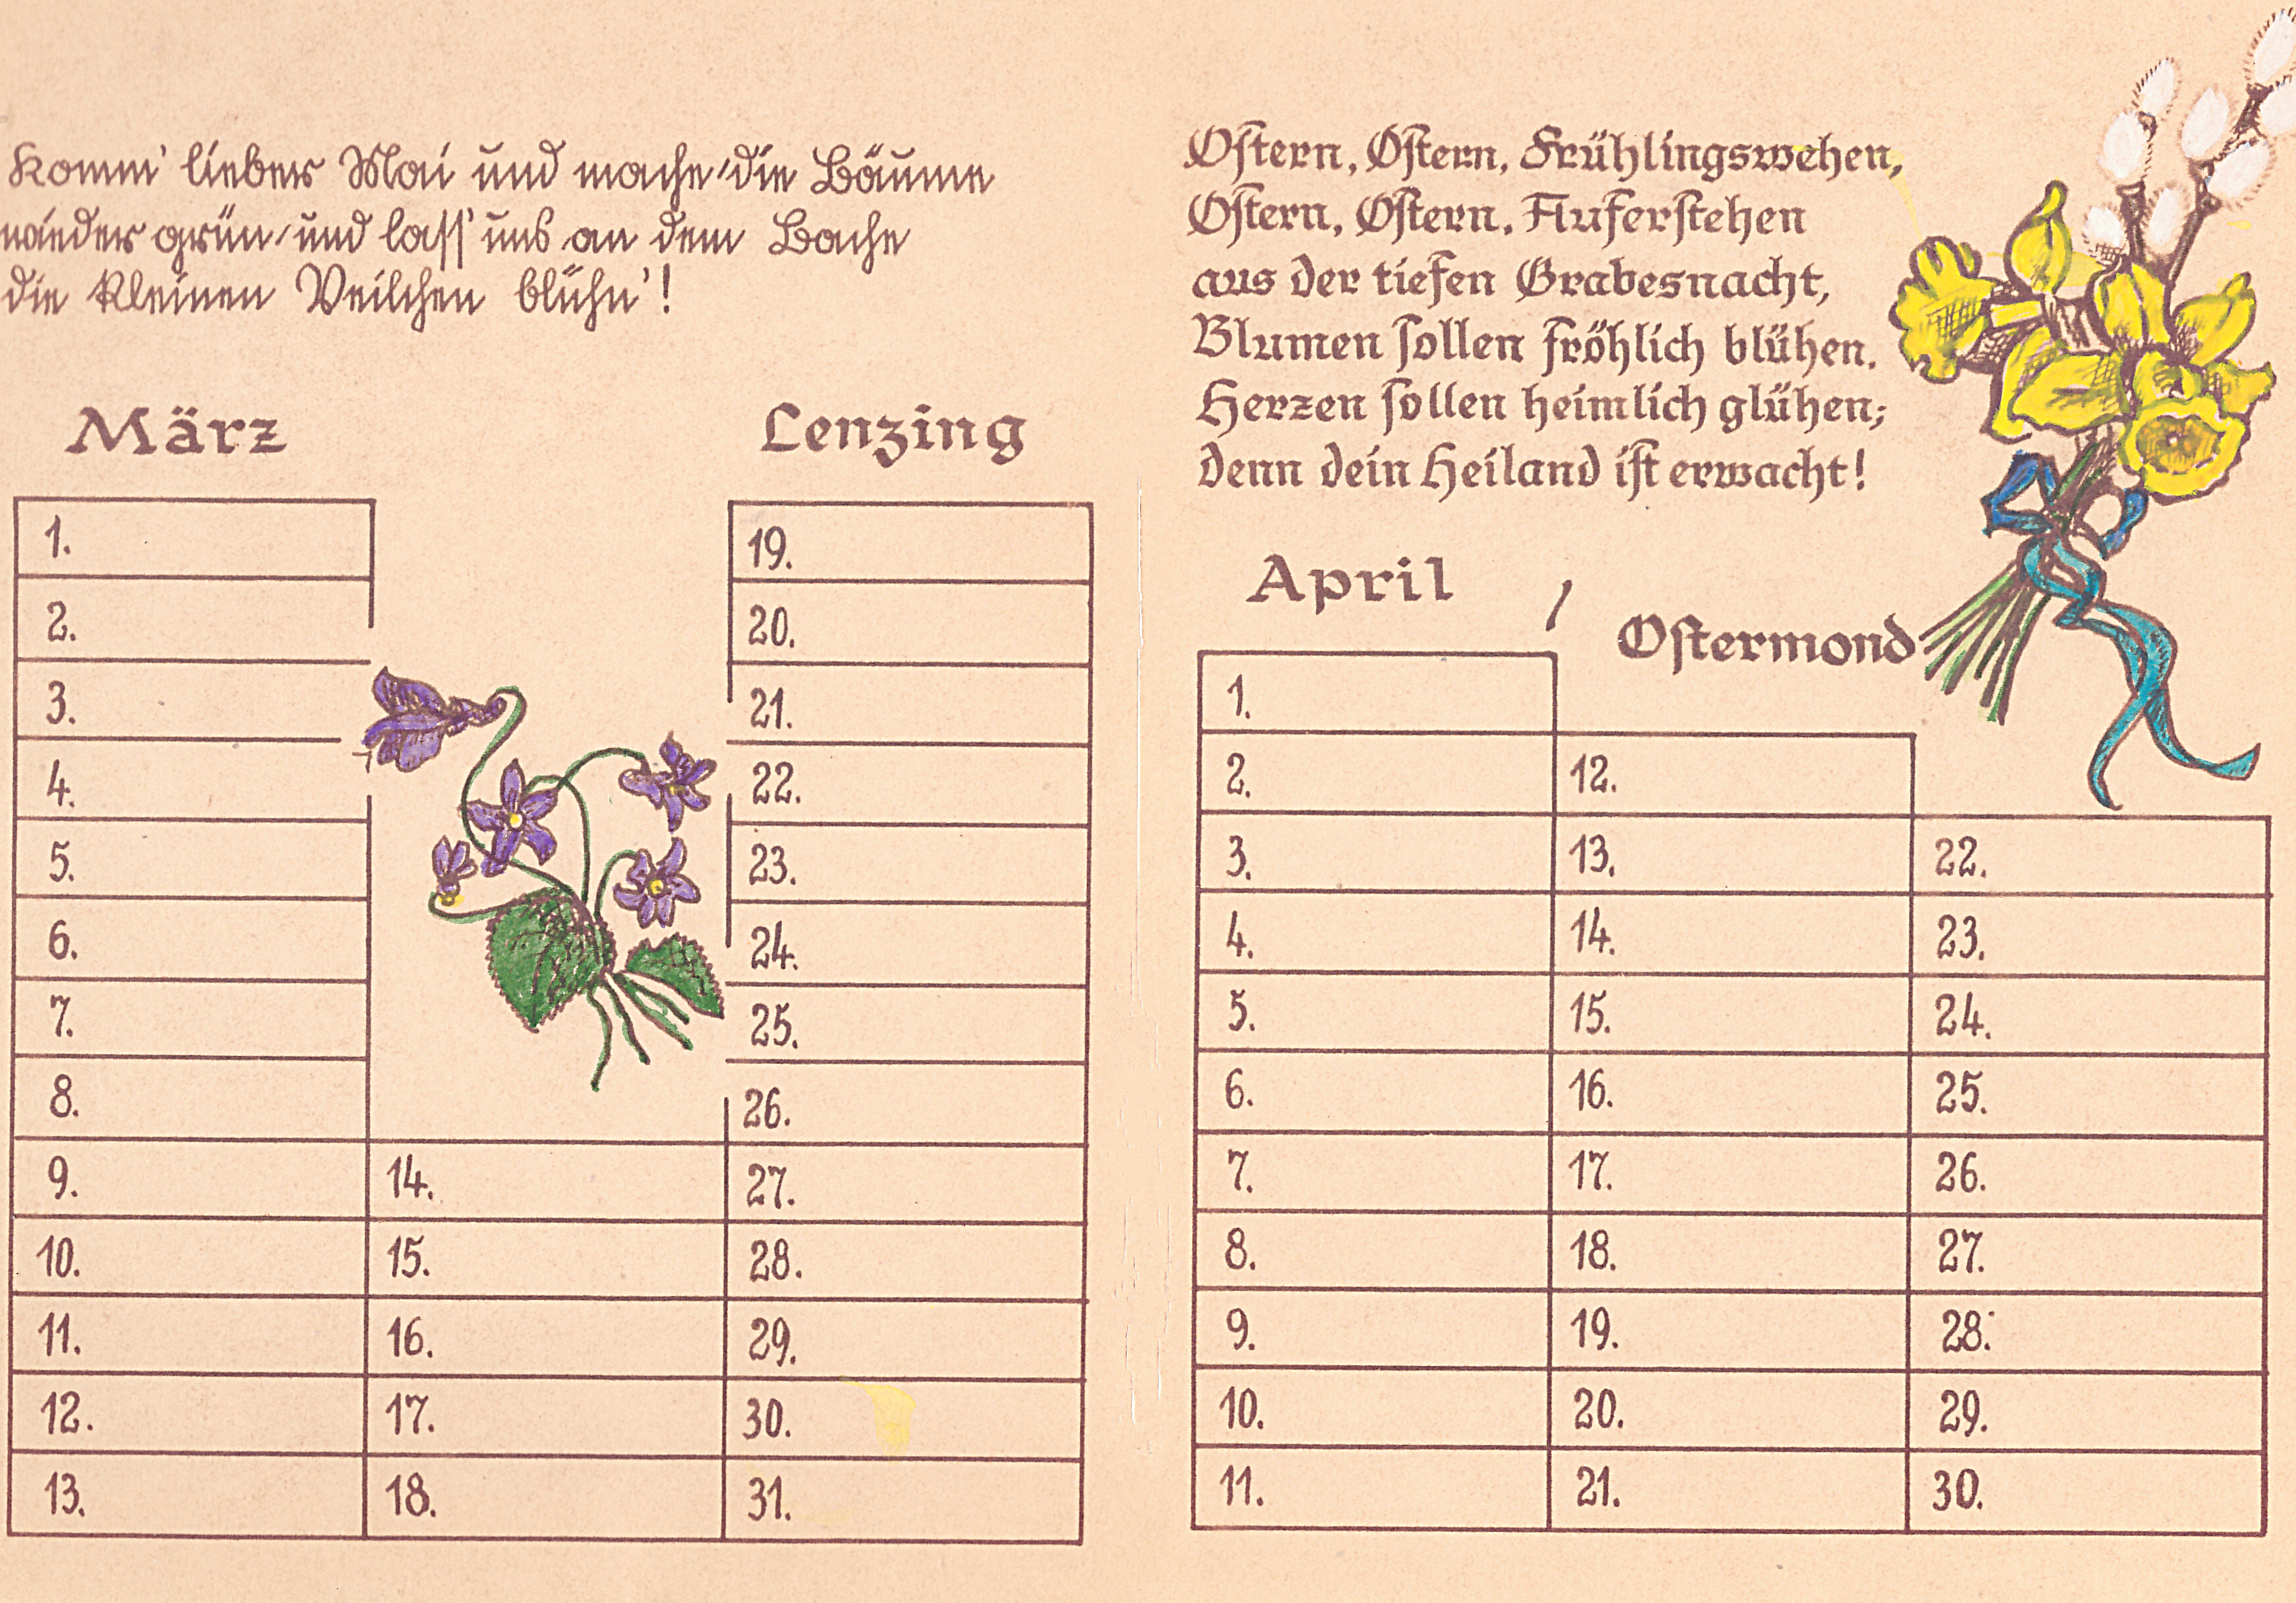 Komm' lieber Mai und mache, die Bäume
wieder grün, und lass' uns an dem Bache
die kleinen Veilchen blühn'!
März
Lenzing
1.
2.
3.
4.
5.
6.
7.
8.
9.
10.
11.
12.
13.
14.
15.
16.
17.
18.
19.
20.
21.
22.
23.
24.
25.
26.
27.
28.
29.
30.
31.
Oſtern, Oſtern, Frühlingswehen,
Oſtern, Oſtern, Auferſtehen
aus der tiefen Grabesnacht,
Blumen ſollen fröhlich blühen.
Herzen ſollen heimlich glühen;
denn dein Heiland iſt erwacht!
April /
Oſtermond
1.
2.
3.
4.
5.
6.
7.
8.
9.
10.
11.
12.
13.
14.
15.
16.
17.
18.
19.
20.
21.
22.
23.
24.
25.
26.
27.
28.
29.
30.